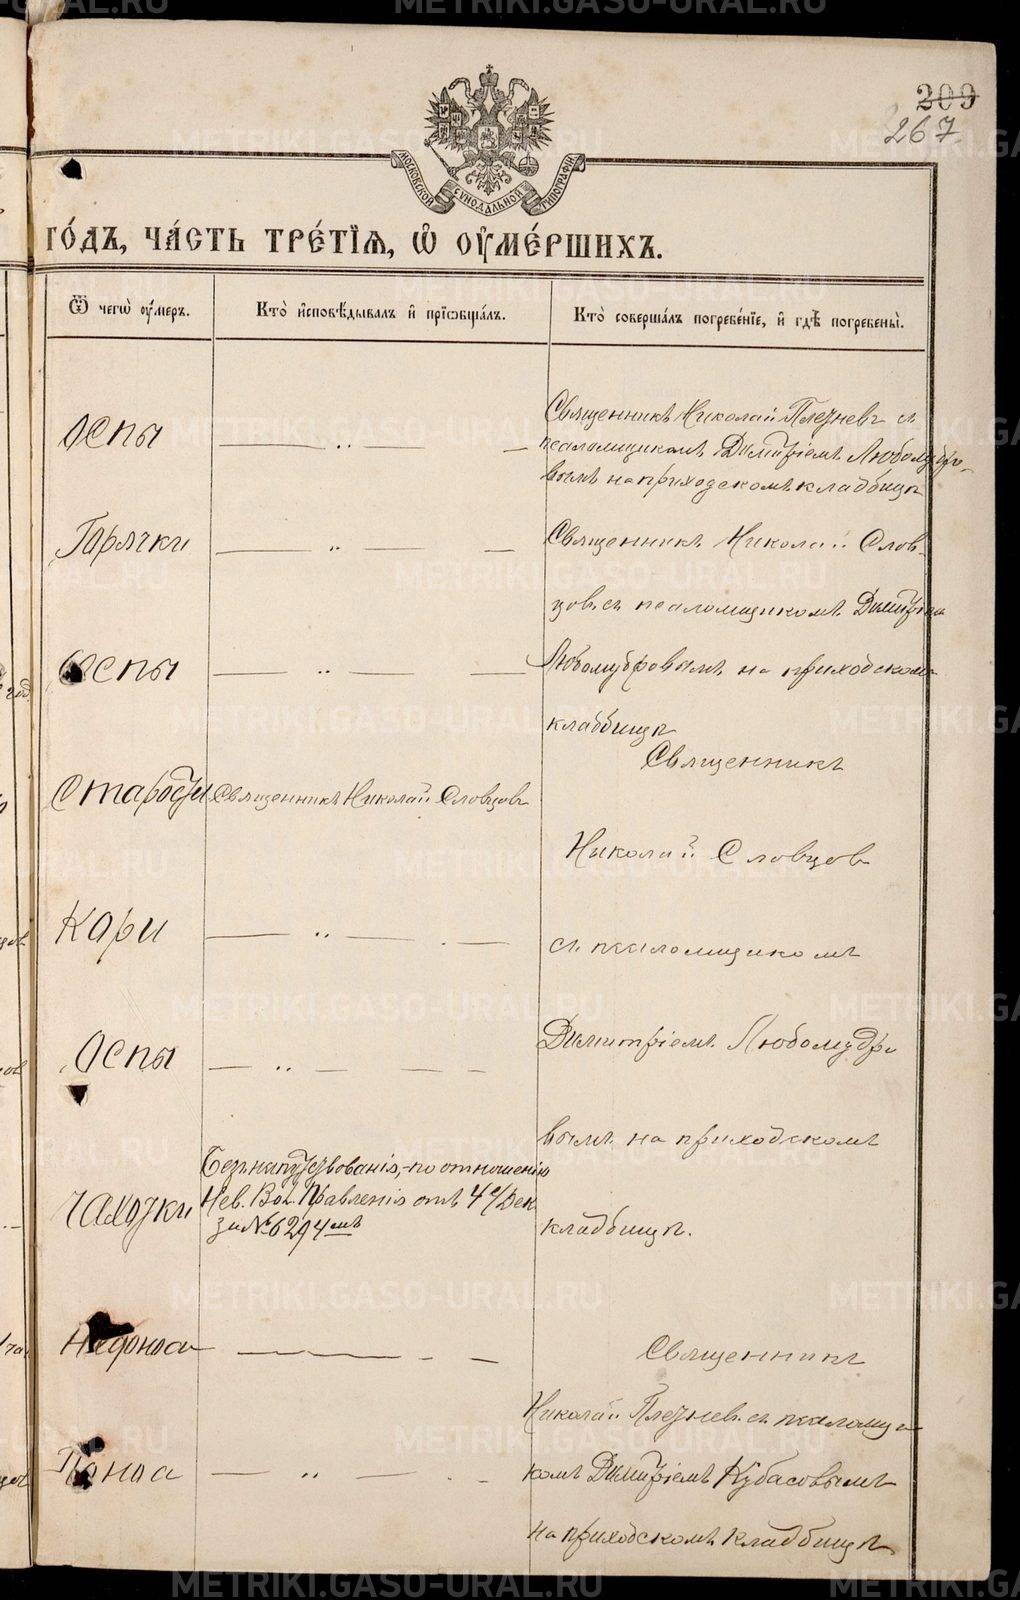 209
267
МОСКОВСКОЙ СУНОДАЛЬНОЙ ТИПОГРАФІИ
го́дъ, ча́сть тре́тїѧ, ѡ҆ ᲂу҆ме́ршихъ.
Ѿ чегѡ̀ ᲂу҆́меръ.
Кто̀ и҆сповѣ́дывалъ и҆ прїѡбща́лъ.
Кто̀ соверша́лъ погребе́нїе, и҆ гдѣ̀ погребены̀.
Оспы
Священникъ Николай Плетневъ съ
псаломщикомъ Димитріемъ Любомудро-
вымъ на приходскомъ кладбищѣ
Горячки
Священникъ Николай Слов-
цовъ съ псаломщикомъ Димитріем
Оспы
Любомудровымъ на приходскомъ
кладбищѣ
Старости
Священникъ Николай Словцовъ
Священникъ
Николай Словцов
Кори
съ псаломщикомъ
Оспы
Димитріемъ Любомудро
вымъ на приходскомъ
Чахотки
Безъ напутствованія, по отношенію
Нев. Вол. Правленія отъ 4 Дек.
за № 6294 мъ
кладбищѣ.
Священникъ
Николай Плетневъ съ псаломщи
Поноса
комъ Димитріемъ Кубасовымъ
на приходскомъ кладбищѣ
METRIKI.GASO-URAL.RU